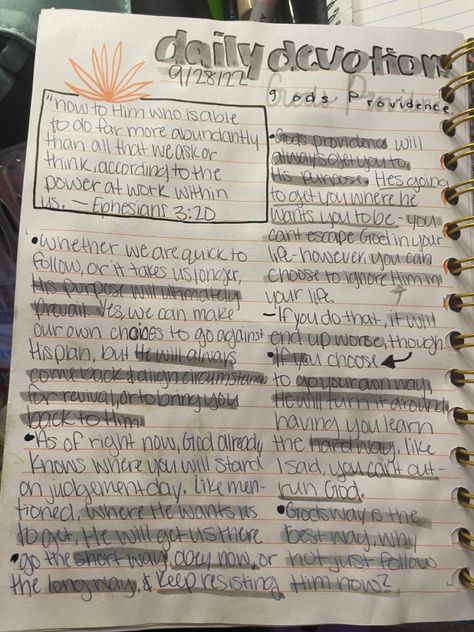 daily devotion
9/28/22
gods Providence
"now to Him who is able
to do far more abundantly
than all that we ask or
think, according to the
power at work within
us. — Ephesians 3:20
• Whether we are quick to
follow, or it takes us longer,
His purpose will ultimately
prevail. Yes, we can make
our own choices to go against
His plan, but He will always
come back & align circumstances
for revival, or to bring you
back to Him.
• As of right now, God already
knows where you will stand
on judgement day. Like men-
tioned, where He wants us
to get, He will get us there
• go the short way, obey now, or
the long way, & keep resisting
• Gods providence will
always get you to
His purpose. He's going
to get you where he
wants you to be - you
cant escape God in your
life - however you can
choose to ignore Him in
your life.
- If you do that, it will
end up worse, though.
• If you choose
to go your own way,
He will turn it around
having you learn
the hard way. like
I said, you can't out-
run God.
• Gods way is the
best way, why
not just follow
Him now?